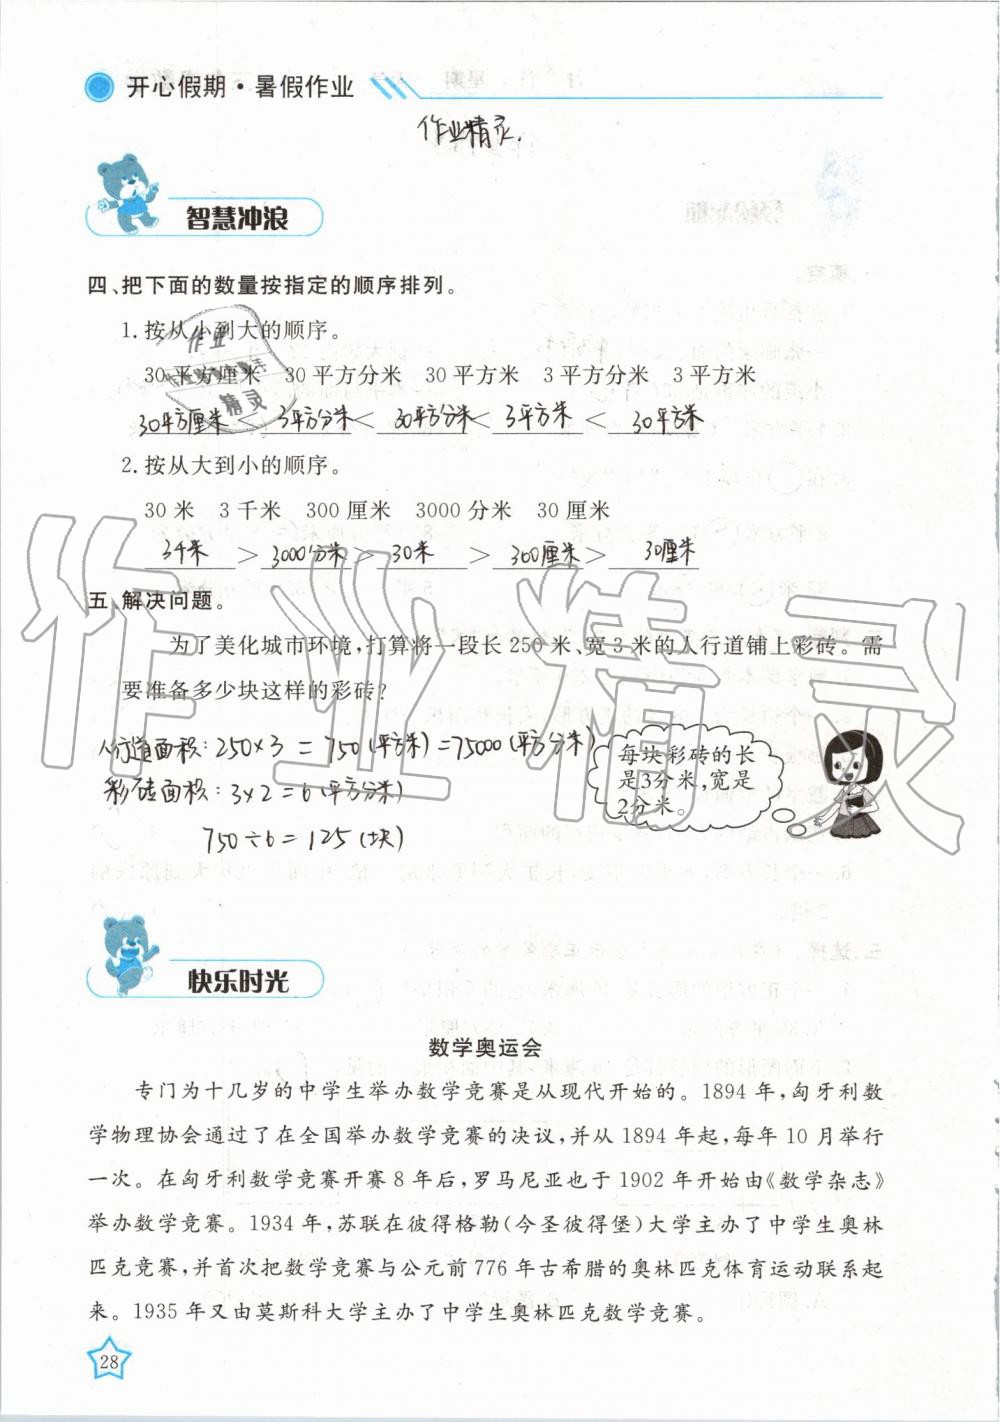 开心假期·暑假作业
作业精灵.
智慧冲浪
四、把下面的数量按指定的顺序排列。
1.按从小到大的顺序。
30平方厘米 30平方分米 30平方米 3平方分米 3平方米
30平方厘米 < 3平方分米 < 30平方分米 < 3平方米 < 30平方米
2.按从大到小的顺序。
30米 3千米 300厘米 3000分米 30厘米
3千米 > 3000分米 > 30米 > 300厘米 > 30厘米
五、解决问题。
为了美化城市环境,打算将一段长250米、宽3米的人行道铺上彩砖。需
要准备多少块这样的彩砖?
人行道面积:250×3=750(平方米)=75000(平方分米)
彩砖面积:3×2=6(平方分米)
750÷6=125(块)
每块彩砖的长
是3分米,宽是
2分米。
快乐时光
数学奥运会
专门为十几岁的中学生举办数学竞赛是从现代开始的。1894年,匈牙利数
学物理协会通过了在全国举办数学竞赛的决议,并从1894年起,每年10月举行
一次。在匈牙利数学竞赛开赛8年后,罗马尼亚也于1902年开始由《数学杂志》
举办数学竞赛。1934年,苏联在彼得格勒(今圣彼得堡)大学主办了中学生奥林
匹克竞赛,并首次把数学竞赛与公元前776年古希腊的奥林匹克体育运动联系起
来。1935年又由莫斯科大学主办了中学生奥林匹克数学竞赛。
28
作业精灵
作业
精灵